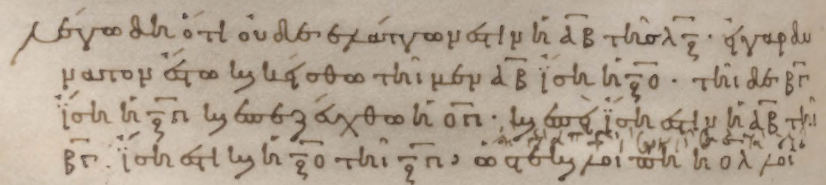 λέγω δὴ ὅτι οὐδὲ ἐλάττων ἐστὶν ἡ αβ τῆς λξ · εἰ γὰρ δυ
νατον ἔστω καὶ κείσθω τῆι μὲν αβ ἴση ἡ ξο · τῆι δὲ βγ
ἴση ἡ ξπ καὶ ἐπεζεύχθω ἡ οπ · καὶ ἐπεὶ ἴση ἐστὶν ἡ αβ τῆι
βγ · ἴση ἐστὶ καὶ ἡ ξο τῆι ξπ, ὥστε καὶ λοιπὴ ἡ ολ λοι